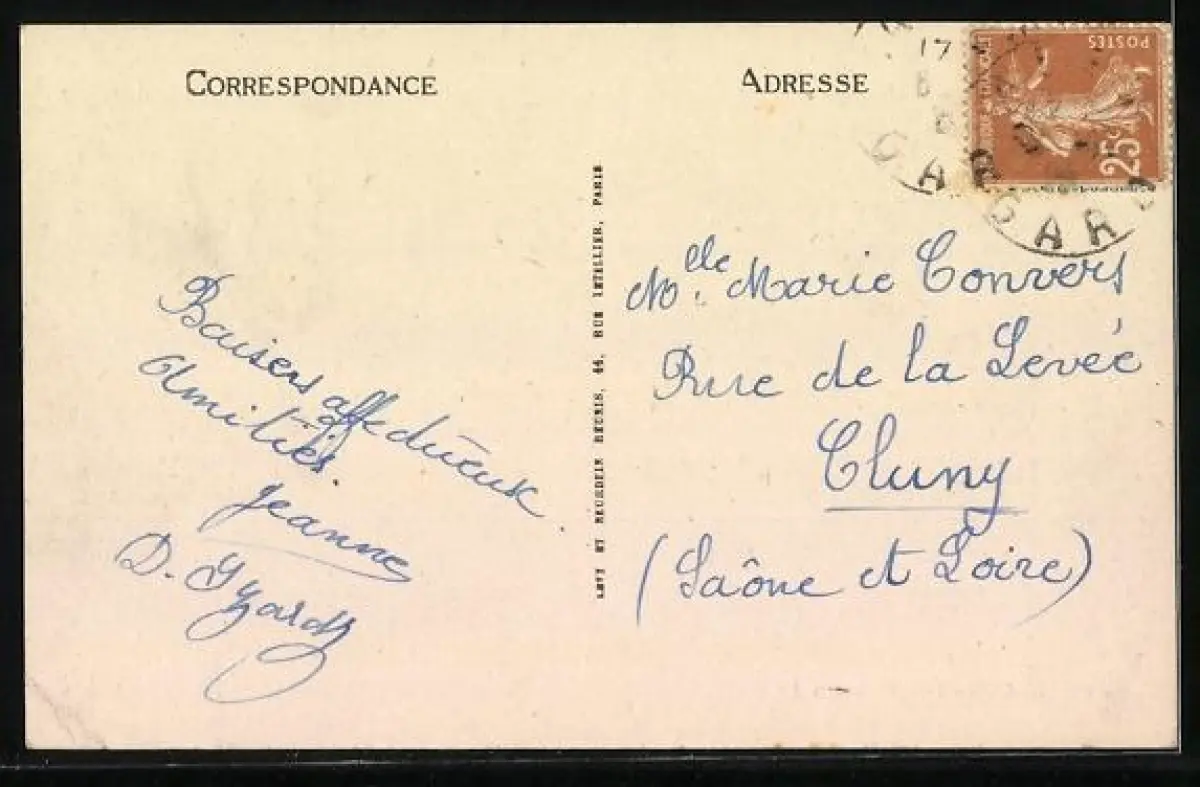 CORRESPONDANCE
ADRESSE
17
GARD
GARD
POSTES
25c
LEVY ET NEURDEIN RÉUNIS, 44, RUE LETELLIER, PARIS
Baisers affectueux
Amitiés.
Jeanne
D.
Mlle Marie Convers
Rue de la Levée
Cluny
(Saône et Loire)